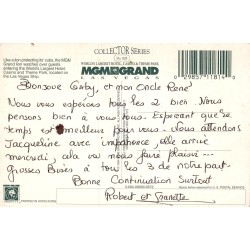 COLLECTOR SERIES
Like color-contrasting lits' cubs, the MGM
Grand lion
WORLD'S LARGEST HOTEL, CASINO & THEME PARK
MGM GRAND
LAS VEGAS
0 29857 11814
Casino and Theme Park, located on
the Las Vegas Strip.
Bonjour Gaby, et mon Oncle René
Nous vous espérons tous les 2 bien. Nous
pensons bien à vous tous. Espérant que le
temps est meilleur pour vous. Nous attendons
Jacqueline avec impatience, elle arrive
mercredi, cela va nous faire plaisir...
Grosses Bises à tous les 3 de notre part.
Bonne Continuation Surtout
Robert et Ginette